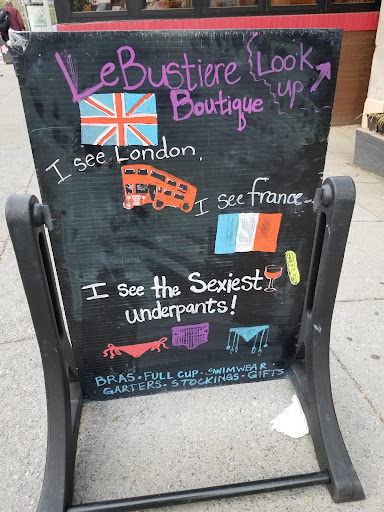 LeBustiere
Boutique
Look
up
I see London,
I see france-
I see the Sexiest
underpants!
BRAS · FULL CUP · SWIMWEAR ·
GARTERS · STOCKINGS · GIFTS